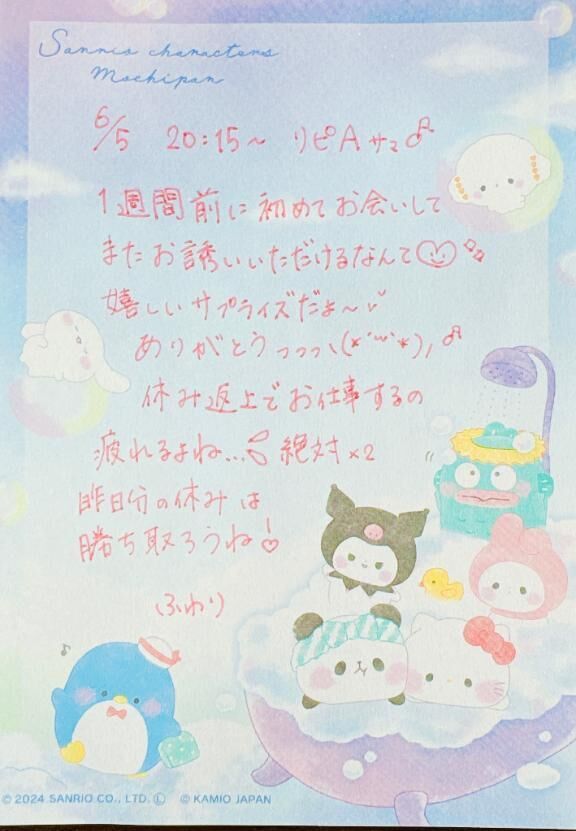 Sanrio characters
Mochipan
6/5 20:15~ リピAサマ♂
1週間前に初めてお会いして
またお誘いいただけるなんて♡
嬉しいサプライズだよ〜
ありがとうっっっ\(*´꒳`*)/♂
休み返上でお仕事するの
疲れるよね...💦絶対×2
昨日分の休みは
勝ち取ろうね!
ふわり
© 2024 SANRIO CO., LTD. Ⓛ © KAMIO JAPAN